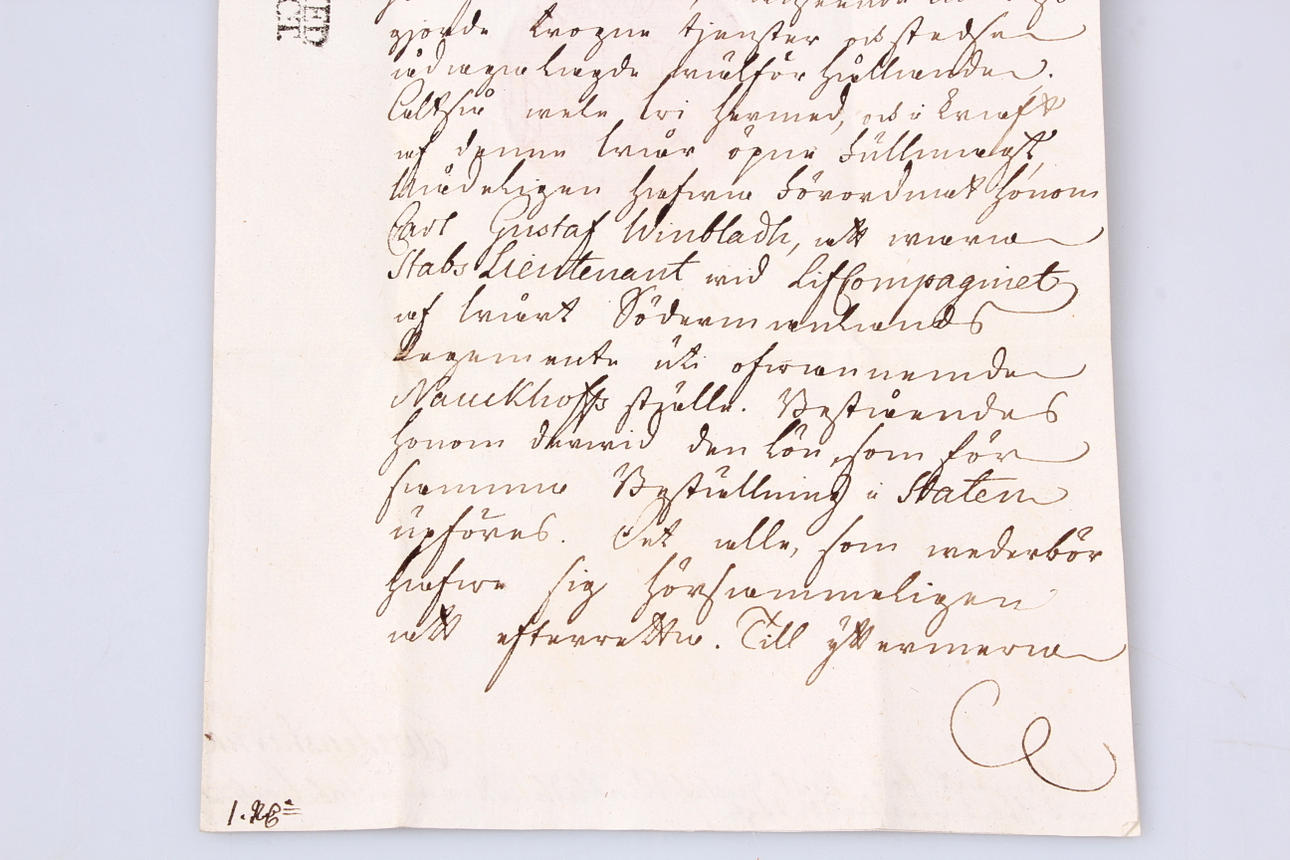 gjorde trogne tjenster och stedse
ådagalagde wälförhållande.
Altså wele Wi hermed, och i kraft
af denne Wår öpne Fullmagt,
Nådeligen hafwa Förordnat honom
Carl Gustaf Winbladh, att wara
Stabs Lieutenant wid LifCompagniet
af Wårt Södermanlands
Regemente uti ofwannemde
Nauckhoffs ställe. Bestående
honom derwid den Lön, som för
samma Beställning i Staten
upföres. Det alle, som wederbör
hafwe sig hörsammeligen
att efterrätta. Till yttermera